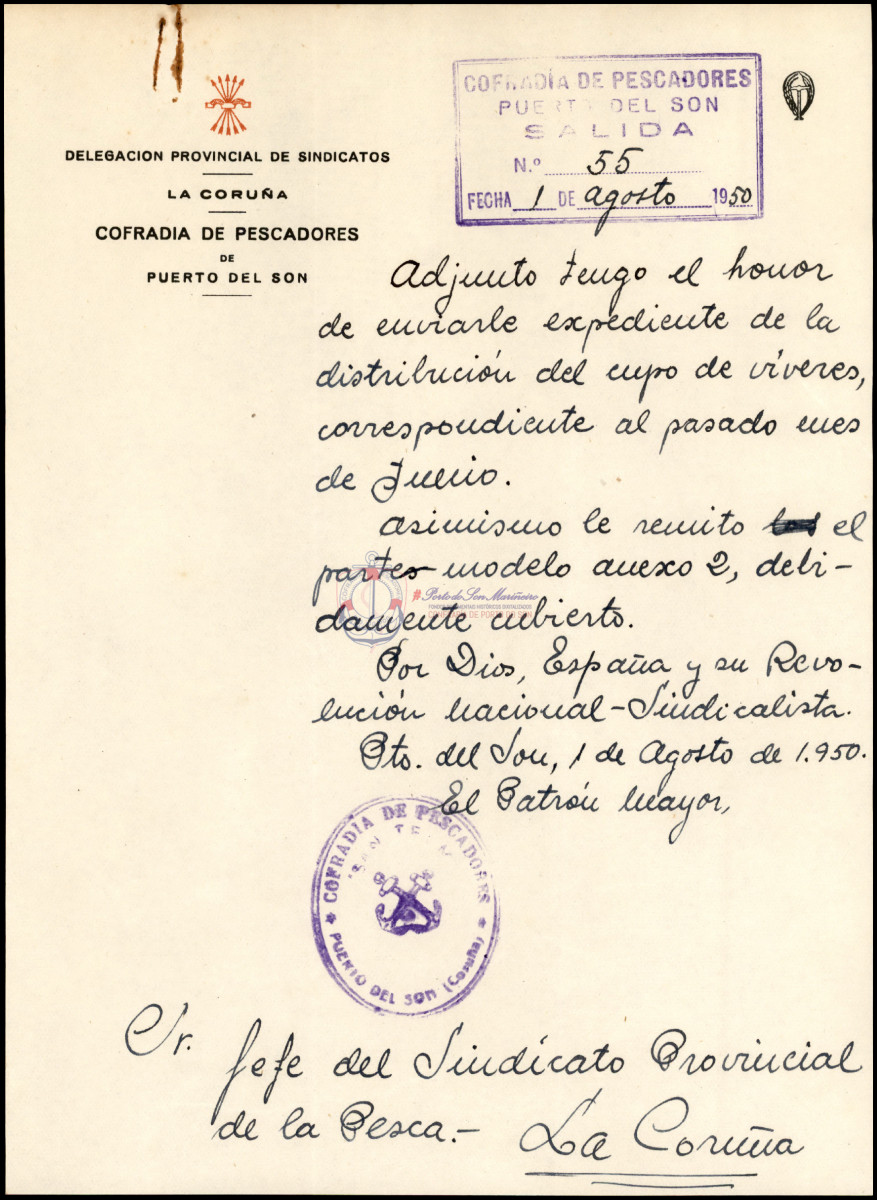 COFRADÍA DE PESCADORES
PUERTO DEL SON
SALIDA
N.º 55
FECHA 1 DE agosto 1950
DELEGACION PROVINCIAL DE SINDICATOS
LA CORUÑA
COFRADIA DE PESCADORES
DE
PUERTO DEL SON
Adjunto tengo el honor
de enviarle expediente de la
distribución del cupo de víveres,
correspondiente al pasado mes
de Junio.
Asimismo le remito los el
partes modelo anexo 2, debi-
damente cubierto.
#Porto do Son Mariñeiro
FONDOS DOCUMENTAIS HISTÓRICOS DIGITALIZADOS
COFRADÍA DE PORTO DO SON
Por Dios, España y su Revo-
lución Nacional-Sindicalista.
Pto. del Son, 1 de Agosto de 1.950.
El Patrón Mayor,
COFRADIA DE PESCADORES
PUERTO DEL SON (Coruña)
Sr. Jefe del Sindicato Provincial
de la Pesca.- La Coruña